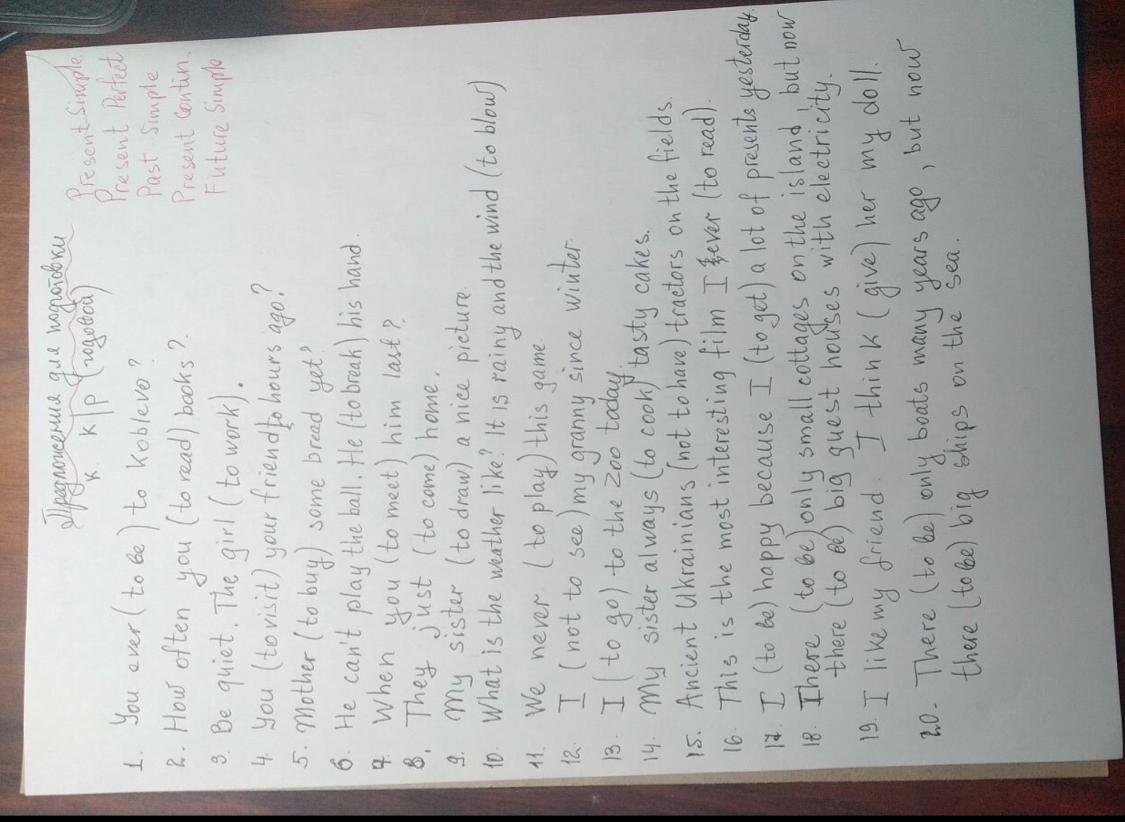 Предложения для подготовки
к к/р (годовой)
Present Simple.
Present Perfect
Past Simple
Present Contin.
Future Simple
1. You ever (to be) to Koblevo?
2. How often you (to read) books?
3. Be quiet. The girl (to work).
4. You (to visit) your friend hours ago?
5. Mother (to buy) some bread yet?
6. He can't play the ball. He (to break) his hand.
7. When you (to meet) him last?
8. They just (to come) home.
9. My sister (to draw) a nice picture.
10. What is the weather like? It is rainy and the wind (to blow)
11. We never (to play) this game.
12. I (not to see) my granny since winter.
13. I (to go) to the Zoo today.
14. My sister always (to cook) tasty cakes.
15. Ancient Ukrainians (not to have) tractors on the fields.
16. This is the most interesting film I ever (to read).
17. I (to be) happy because I (to get) a lot of presents yesterday.
18. There (to be) only small cottages on the island, but now
there (to be) big guest houses with electricity.
19. I like my friend. I think (give) her my doll.
20. There (to be) only boats many years ago, but now
there (to be) big ships on the sea.